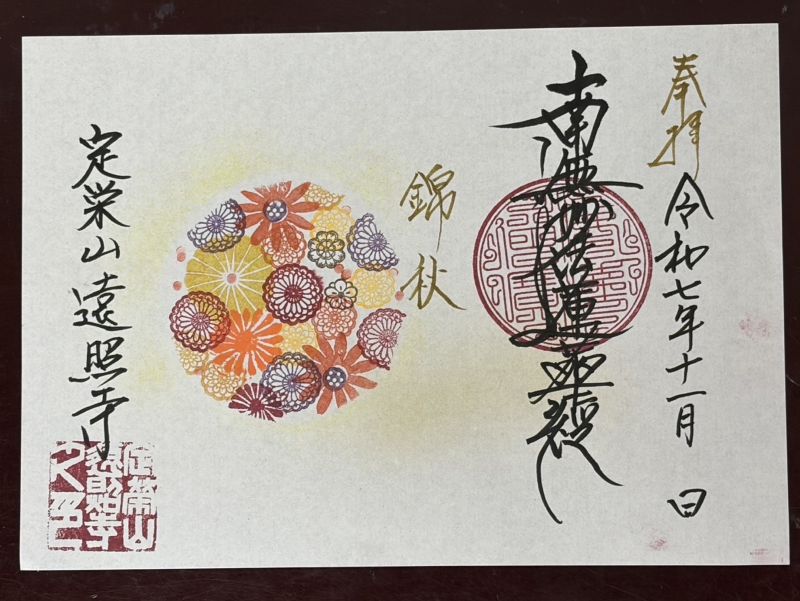 奉拝
令和七年十一月 日
南無妙法蓮華経
錦秋
定栄山 遠照寺